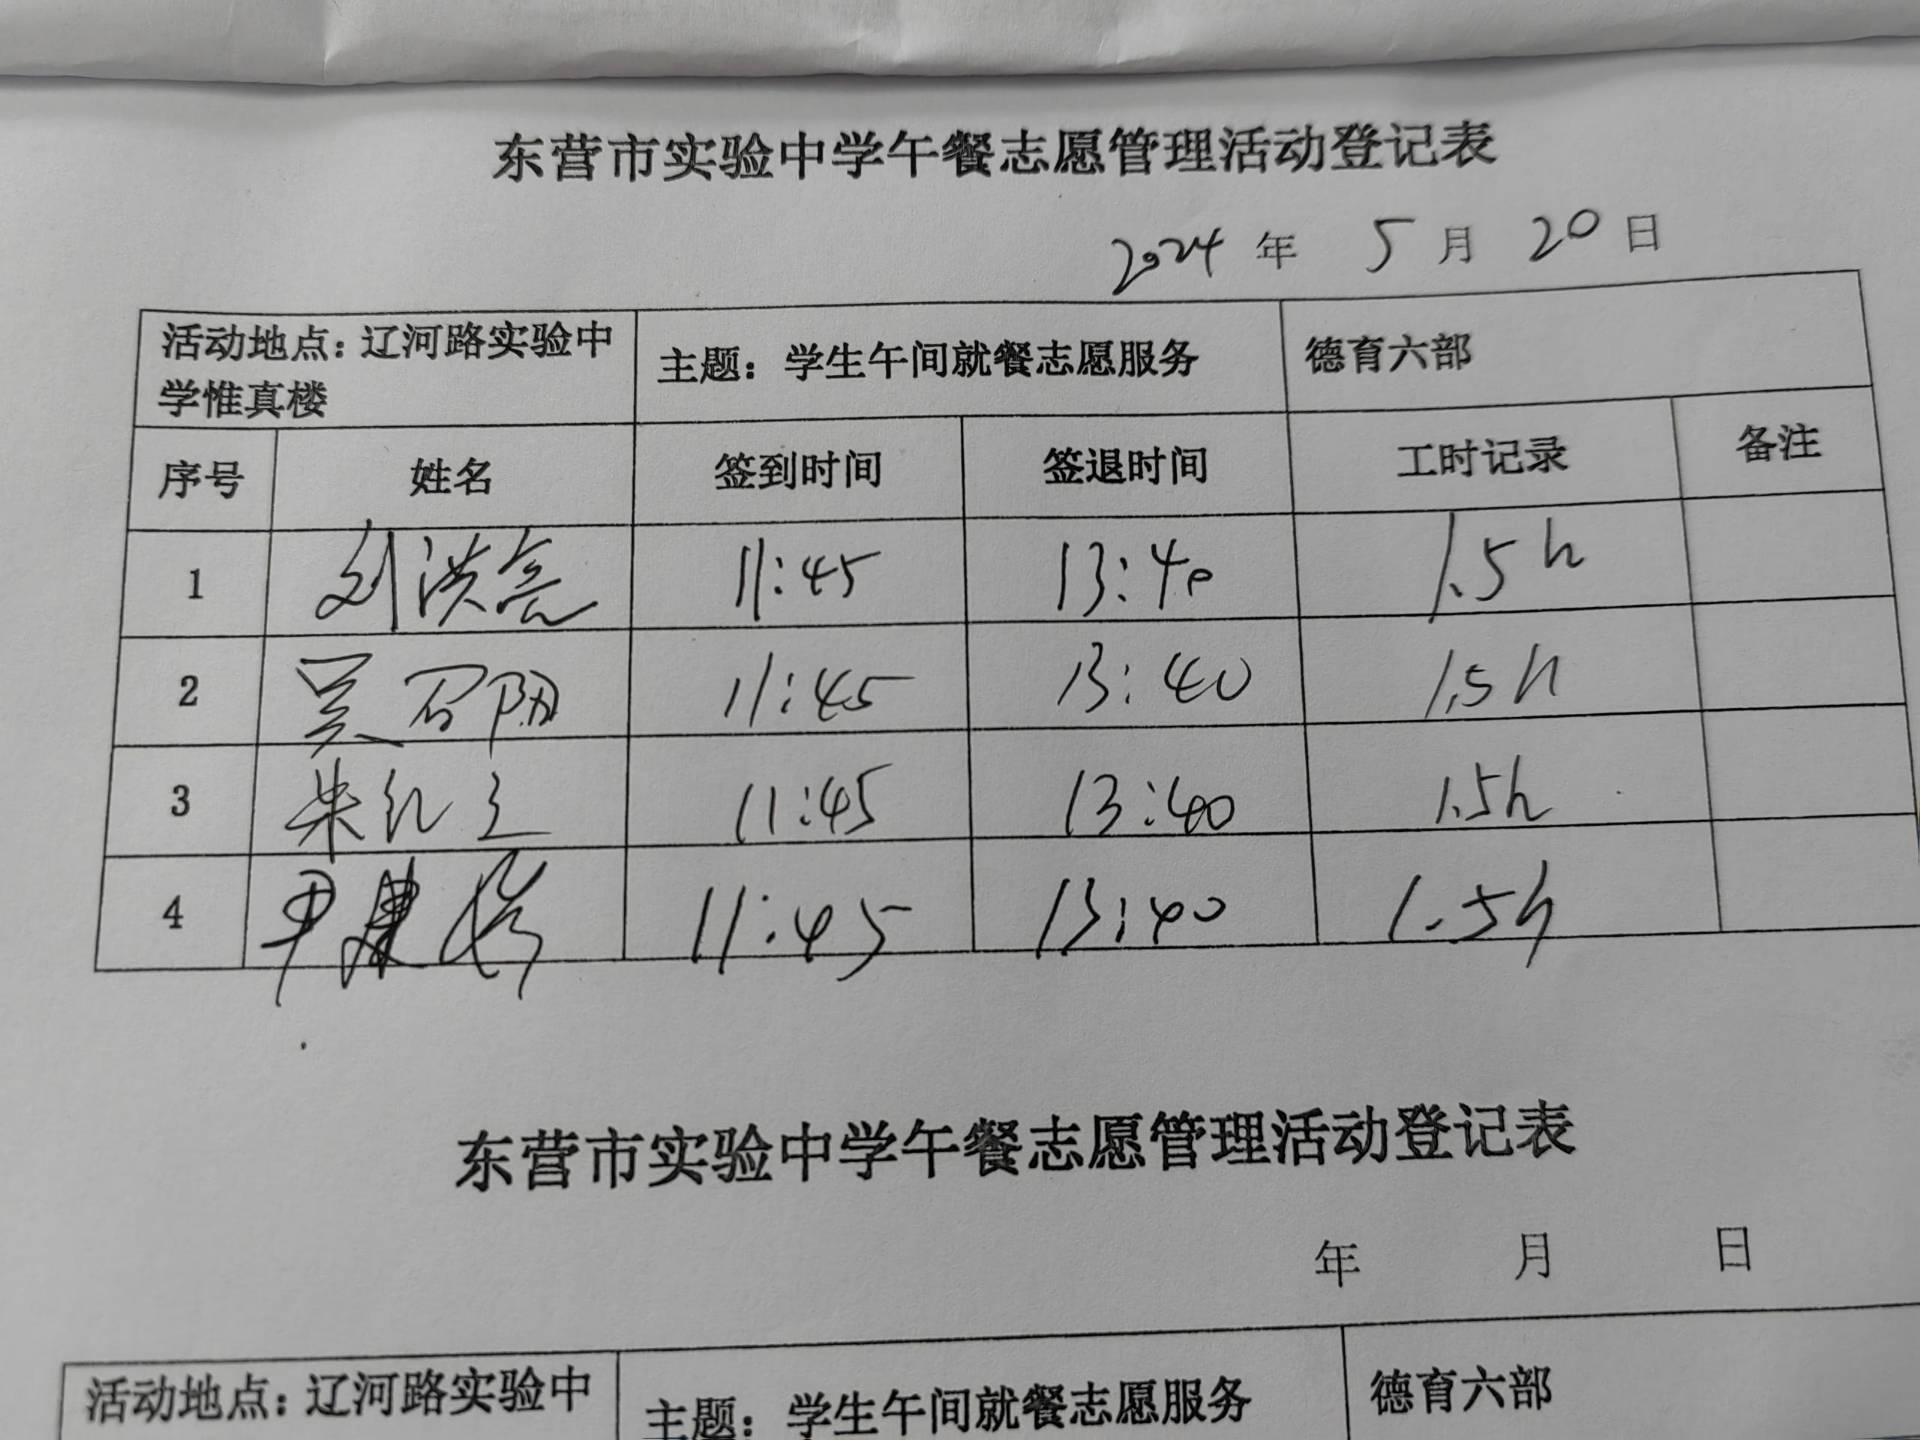 东营市实验中学午餐志愿管理活动登记表
2024 年 5 月 20 日
活动地点：辽河路实验中学惟真楼 主题：学生午间就餐志愿服务 德育六部
序号 姓名 签到时间 签退时间 工时记录 备注
1 刘洪亮 11:45 13:40 1.5h
2 吴召阳 11:45 13:40 1.5h
3 朱红 11:45 13:40 1.5h
4 尹建 11:45 13:40 1.5h
东营市实验中学午餐志愿管理活动登记表
年 月 日
活动地点：辽河路实验中 主题：学生午间就餐志愿服务 德育六部